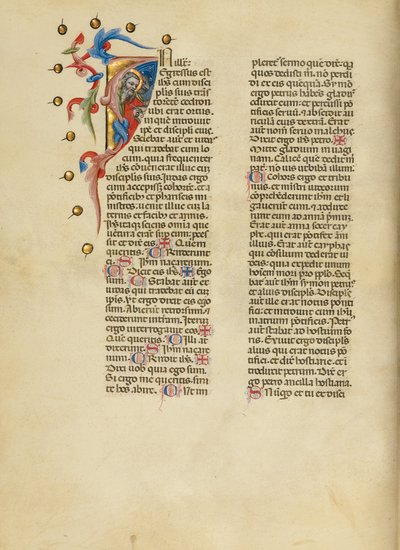 Egressus est
ihs cum disci
plis suis trās
torētē cedron
ubi erat ortus.
in quē introiuit
ipē et discipli eius.
Sciebat autē et iudas
qui tradebat eum lo
cum. quia frequenter
ihs cōuenerat illuc cum
discipulis suis. Iudas ergo
cum accepisset cohortē. et a
pōtificib; et phariseis mi
nistros. uenit illuc cū la
ternis et facib; et armis.
Ihs itaq; sciens omīa que
uentura erāt sup eum. p̄ces
sit et dixit eis. ✠ Quem
queritis. C Rn̄derūt ei.
S Ihm nazarenum.
C Dicit eis ihs. ✠ Ego
sum. C Stabat autē et
iudas qui tradebat eū cum
ipis. Vt ergo dixit eis ego
sum. Abierūt retrorsum. et
ceciderunt in terram. Iterū
ergo interrogauit eos. ✠
Quē queritis. C Illi āt
dixerunt. S Ihm nazare
num. C Rn̄dit ihs. ✠
Dixi uob quia ego sum.
Si ergo me queritis. sini
te hos abire. C Vt im
pleretē sermo quē dix̄. q̄a
quos dedisti m̄. nō perdi
di ex eis quēquā. Si
mō ergo petrus habēs gladiū
eduxit eum. et percussit pō
tificis seruū. et abscidit au
riculā eius dexterā. Erat
autē nom̄ seruo malchus.
Dixit ergo ihs petro. ✠
Mitte gladium in uagi
nam. Calicē quē dedit m̄
pat̄. nō uis ut bibam illū.
C Cohors ergo et tribu
nus. et mīstri iudeorum
cōprehenderūt ihm et li
gauerūt eum. et adduxe
runt eum ad annā p̄mū.
Erat autē socer cay
phe. qui erat pōtifex anni
illius. Erat autē cayphas
qui cōsilium dederat iu
deis. quia expedit unum
hoīem mori pro pplo. Seq̄
bat̄ autē ihm symon petrus
et alius discipls. Discipls
aūt ille erat notus pōnti
fici. et introiuit cum ihu
in atrium pōtificis. Petrus
autē stabat ad hostium fo
ris. Exiuit ergo discipls
alius qui erat notus pō
tifici. et dix̄ hostiarie. et i
troduxit petrum. Dicit er
go petro ancilla hostiaria.
S Nūqd et tu ex disci